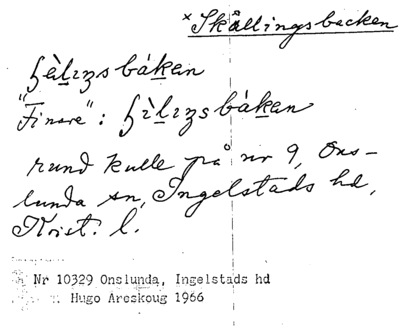 × Skällingsbacken
ʃèlıŋsbákan
"Finare": ʃìlıŋsbákan
rund kulle på nr 9, Ons-
lunda sn, Ingelstads hd,
Krist. l.
Nr 10329 Onslunda, Ingelstads hd
Hugo Areskoug 1966